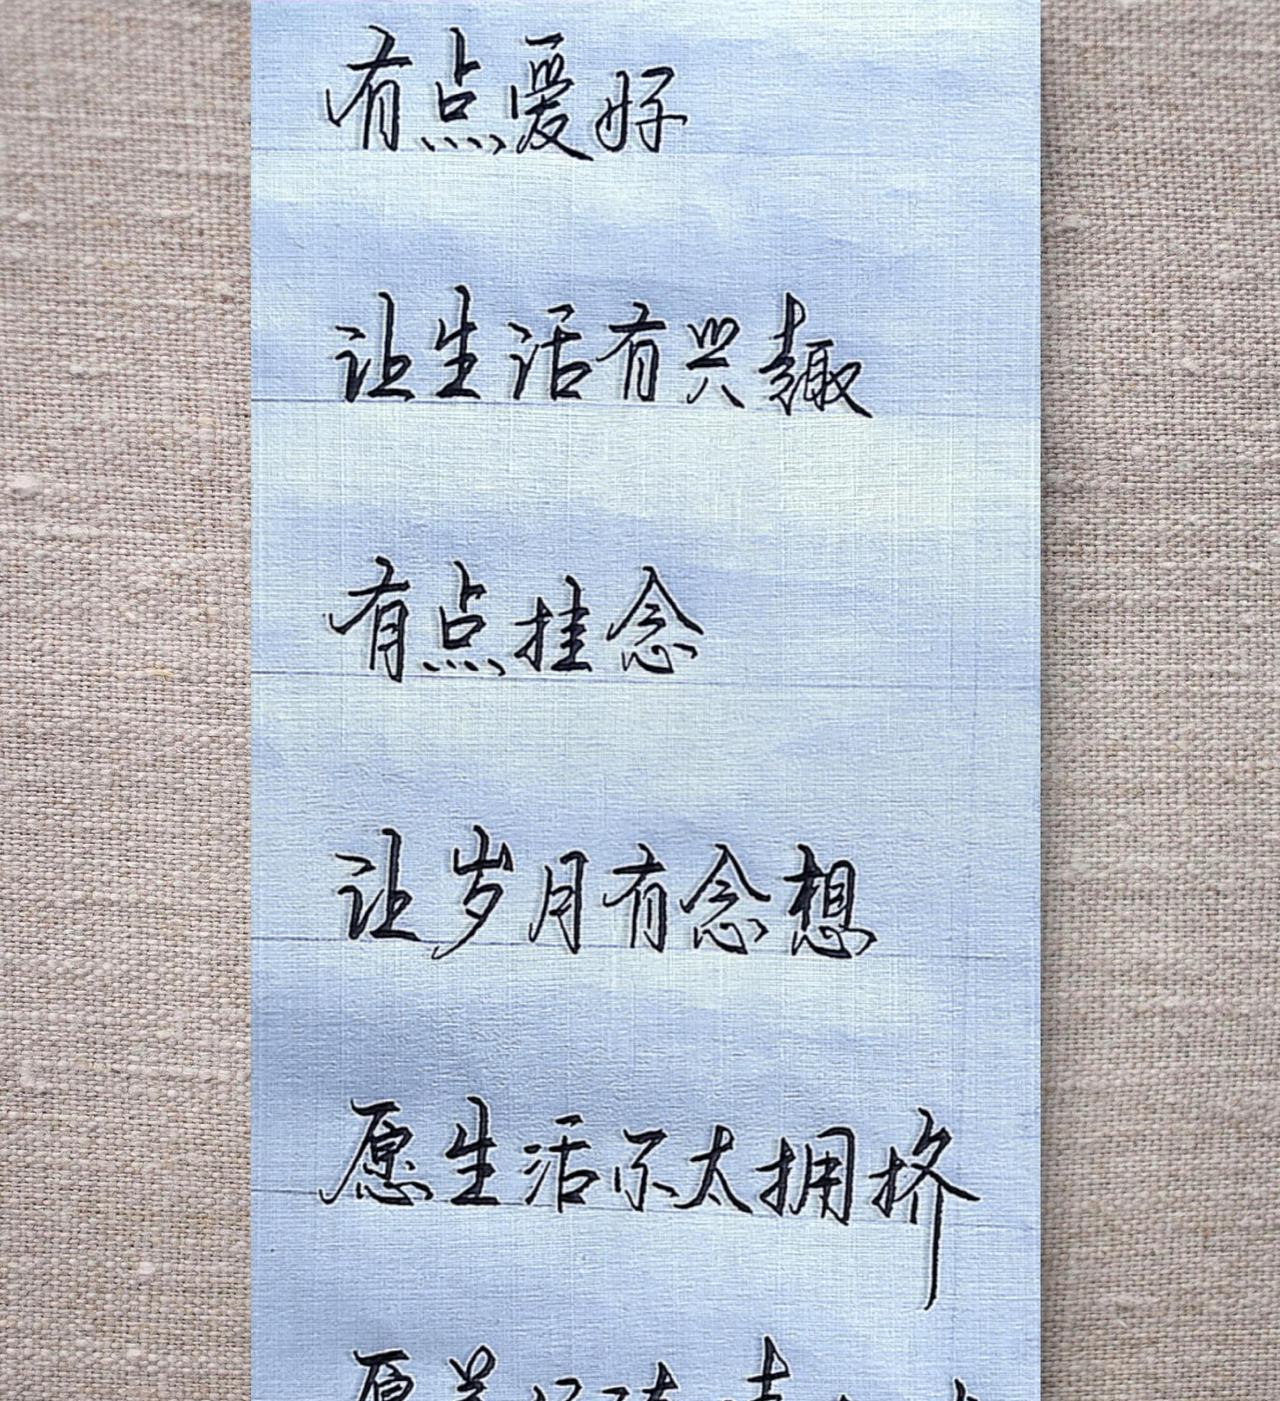 有点爱好
让生活有兴趣
有点挂念
让岁月有念想
愿生活不太拥挤